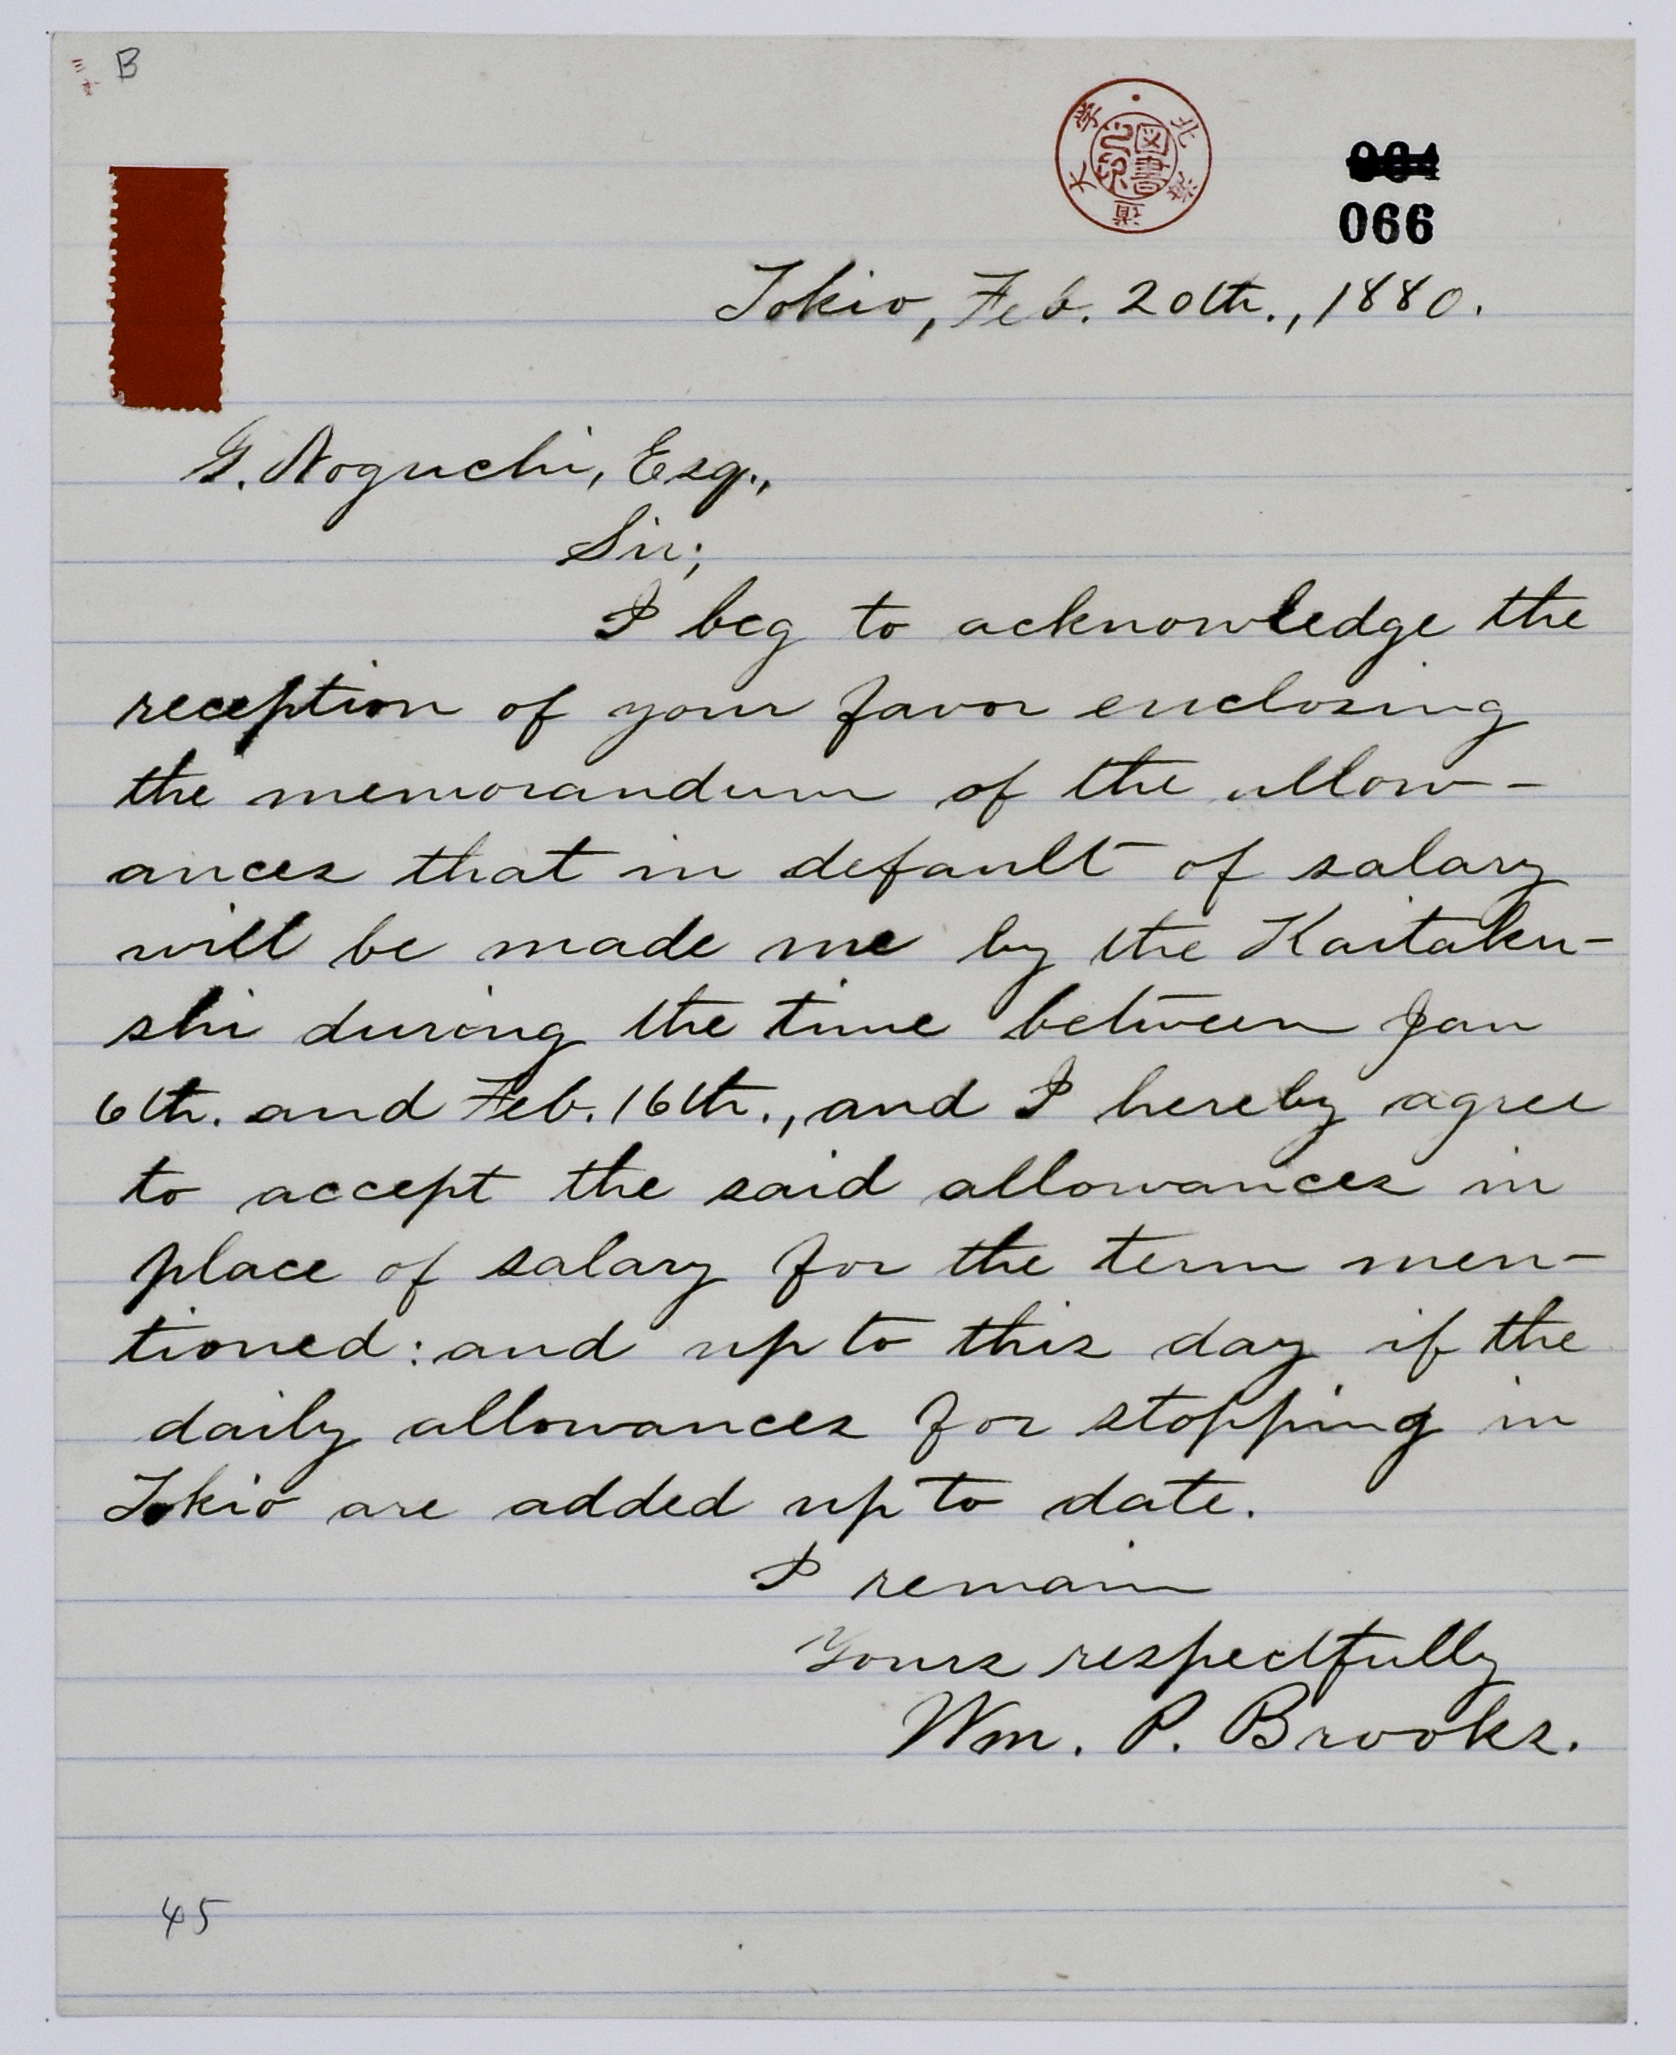 B
北海道大学
図書
066
Tokio, Feb. 20th., 1880.
G. Noguchi, Esq.,
Sir;
I beg to acknowledge the
reception of your favor enclosing
the memorandum of the allow-
ances that in default of salary
will be made me by the Kaitaku-
shi during the time between Jan
6th. and Feb. 16th., and I hereby agree
to accept the said allowances in
place of salary for the term men-
tioned: and up to this day if the
daily allowances for stopping in
Tokio are added up to date.
I remain
Yours respectfully
Wm. P. Brooks.
45